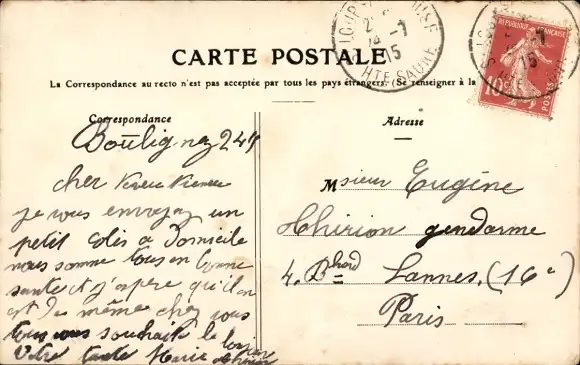 CARTE POSTALE
La Correspondance au recto n'est pas acceptée par tous les pays étrangers. (Se renseigner à la
Correspondance
Adresse
RÉPUBLIQUE FRANÇAISE
10
POSTES
14 - 7
15
HTE SAÔNE
7
15
Bouligney 24
cher
je vous envoyez un
petit colis a Domicile
nous somme tous en bonne
santé et j'espere qu'il en
est de même chez vous
tous vous souhait le bonjour
Votre tante Marie Thirion
Msieur Eugène
Thirion gendarme
4. Bard Lannes, (16e)
Paris